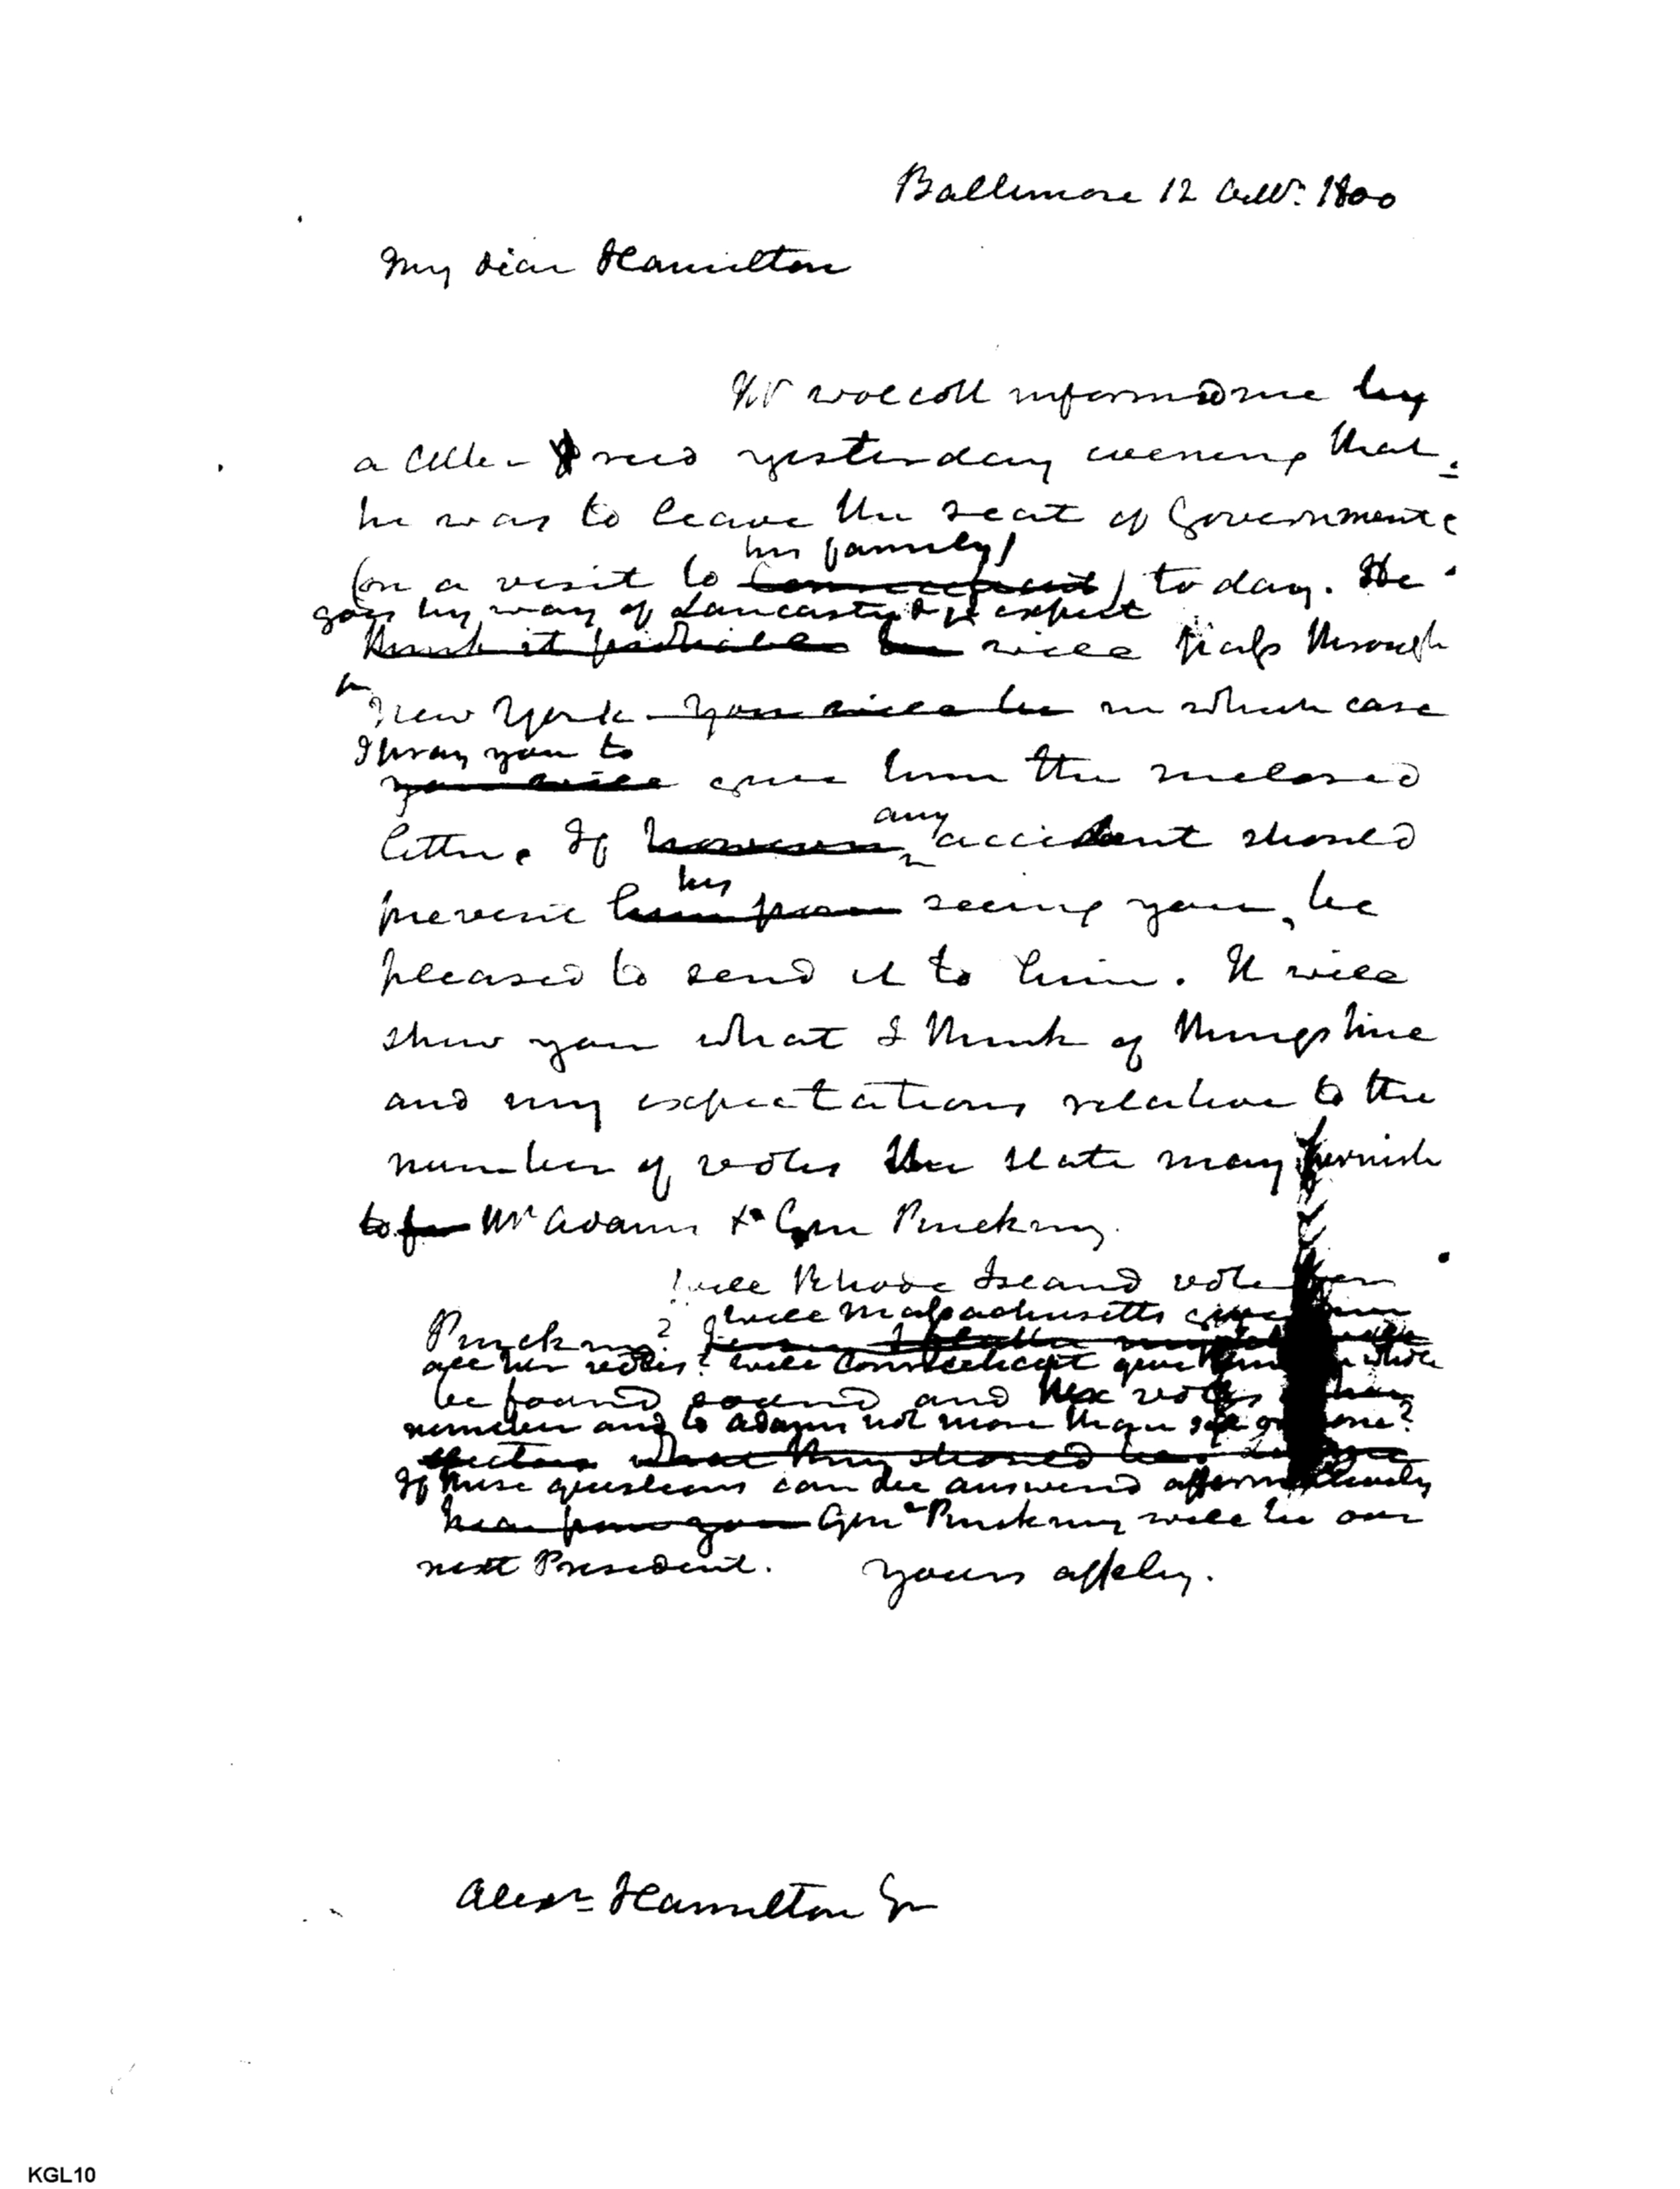 Baltimore 12 Octr. 1800
My dear Hamilton
Mr Wolcott informed me by
a letter recd yesterday evening that
he was to leave the seat of Government
his family)
(on a visit to Connecticut) to day. He
goes by way of Lancaster & I expect
think it probable he will pass through
New York. You will be in which case
I pray you to
you will give him the inclosed
any
letter. If however accident should
his
prevent him from seeing you, be
pleased to send it to him. It will
shew you what I think of things here
and my expectations relative to the
number of votes the state may furnish
to Mr Adams & Gen Pinckney.
Will Rhode Island vote for
Will Massachusetts give him
Pinckney?
all her votes? Will Connecticut give him whole
be found sound and votes
number and to Adams not more than six or one?
electors what they should be
If these questions can be answered affirmatively
hear from you Genl Pinckney will be our
next President. yours affely.
Alexr Hamilton Esr
KGL10